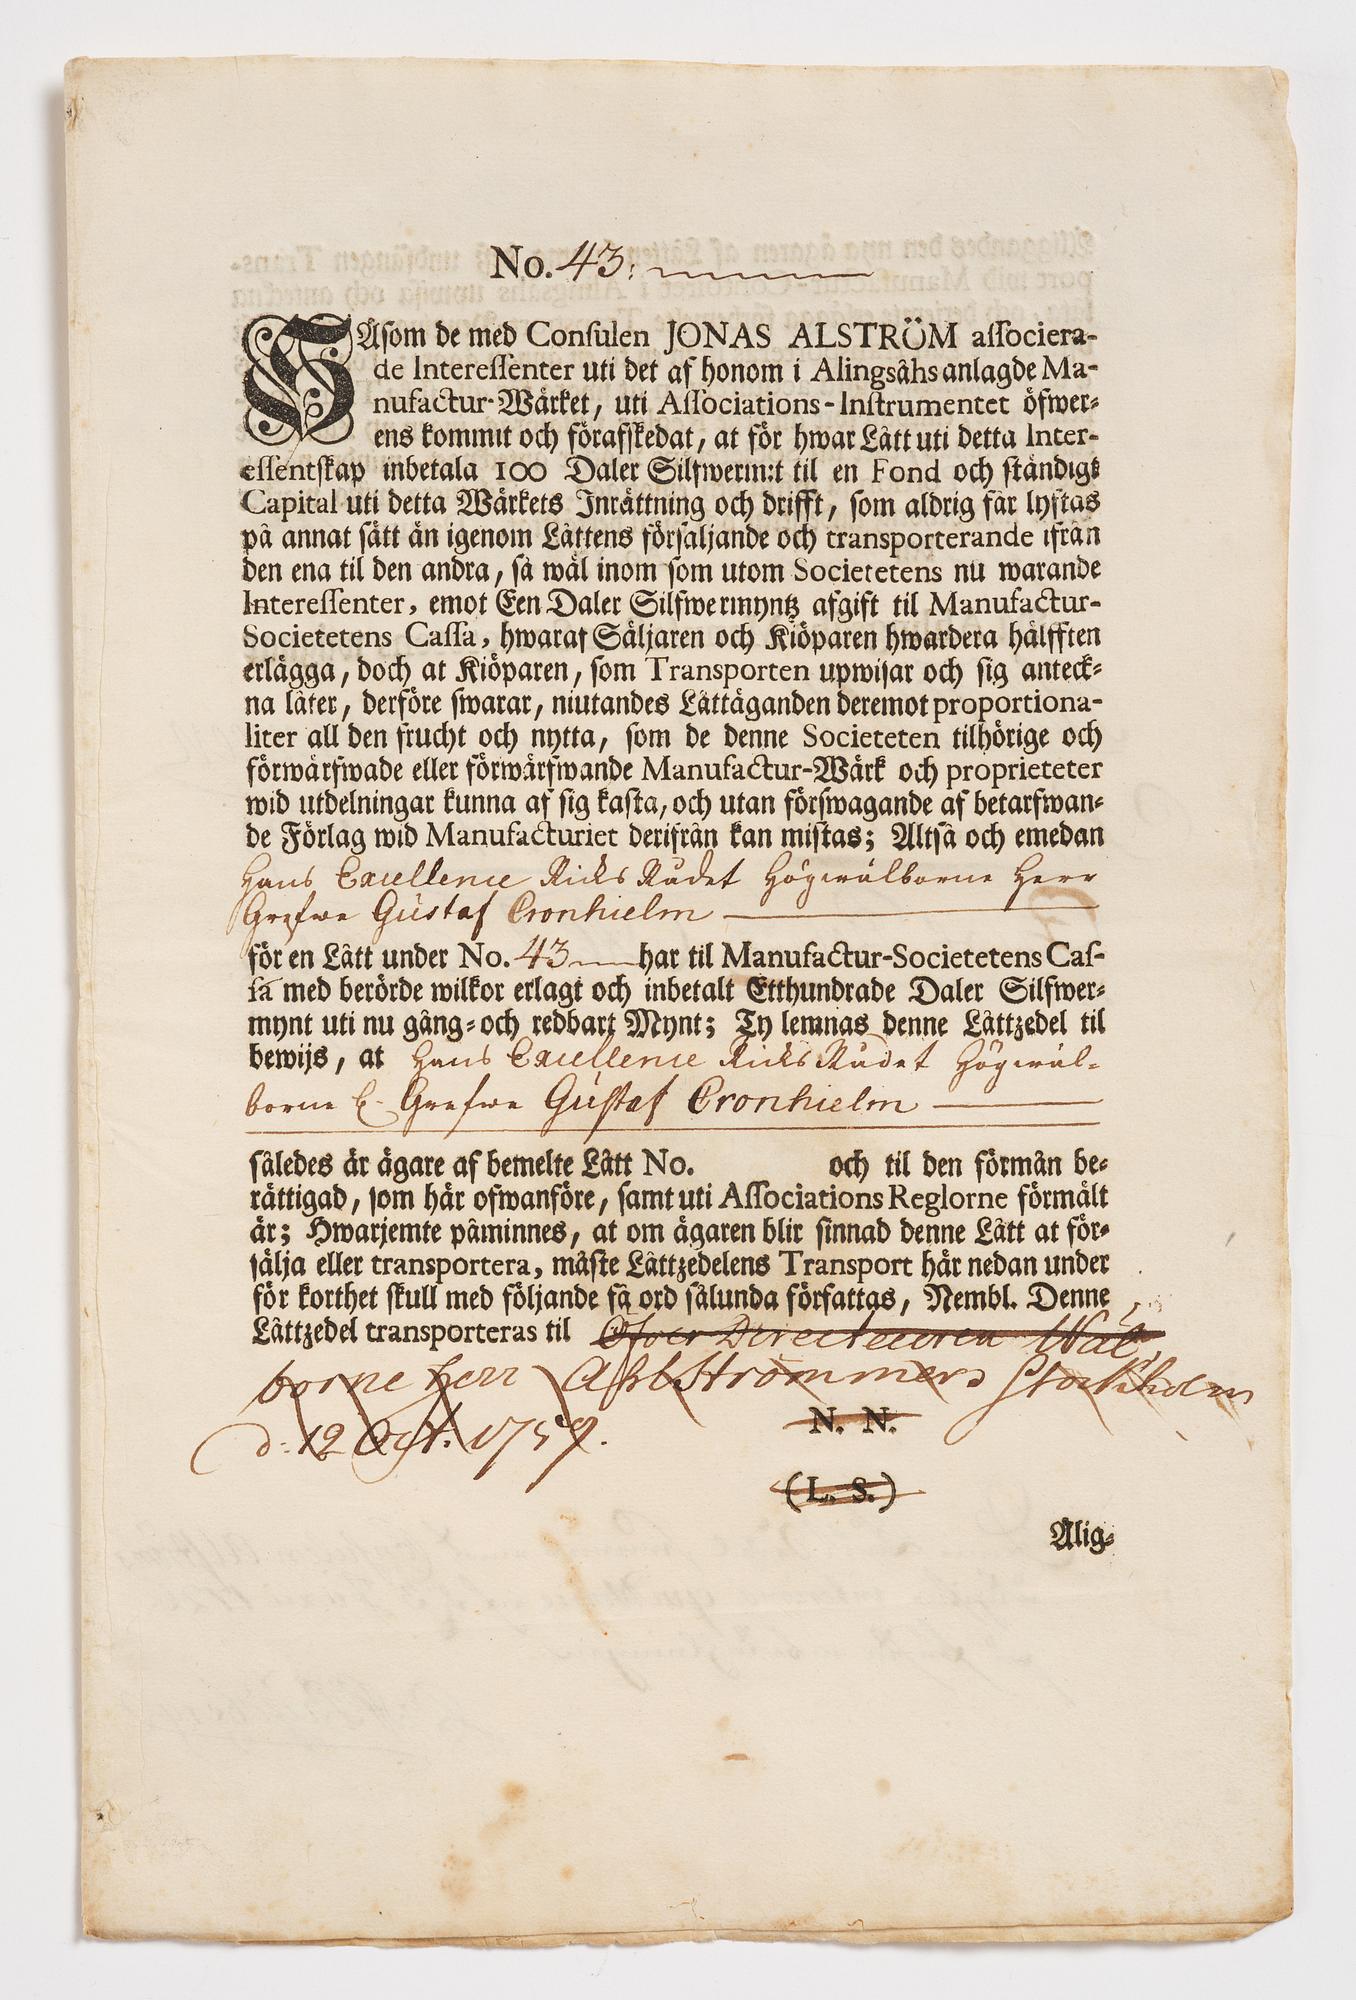 No. 43:
SÅsom de med Consulen JONAS ALSTRÖM associera-
de Interessenter uti det af honom i Alingsåhs anlagde Ma-
nufactur-Wärket, uti Associations-Instrumentet öfwer-
ens kommit och förafskedat, at för hwar Lått uti detta Inter-
essentskap inbetala 100 Daler Silfwerm:t til en Fond och ständigt
Capital uti detta Wärkets Inrättning och drifft, som aldrig får lyftas
på annat sätt än igenom Låttens försäljande och transporterande ifrån
den ena til den andra, så wäl inom som utom Societetens nu warande
Interessenter, emot Een Daler Silfwermyntz afgift til Manufactur-
Societetens Cassa, hwaraf Säljaren och Kiöparen hwardera hälfften
erlägga, doch at Kiöparen, som Transporten upwisar och sig anteck-
na låter, derföre swarar, niutandes Låttäganden deremot proportiona-
liter all den frucht och nytta, som de denne Societeten tilhörige och
förwärfwade eller förwärfwande Manufactur-Wärk och proprieteter
wid utdelningar kunna af sig kasta, och utan förswagande af betarfwan-
de Förlag wid Manufacturiet derifrån kan mistas; Altså och emedan
Hans Excellence Ricks Rådet Högwälborne Herr
Grefwe Gustaf Cronhielm
för en Lått under No. 43 har til Manufactur-Societetens Cas-
sa med berörde wilkor erlagt och inbetalt Etthundrade Daler Silfwer-
mynt uti nu gång- och redbart Mynt; Ty lemnas denne Låttzedel til
bewijs, at Hans Excellence Ricks Rådet Högwäl-
borne H. Grefwe Gustaf Cronhielm
således är ägare af bemelte Lått No. och til den förmån be-
rättigad, som här ofwanföre, samt uti Associations Reglorne förmält
är; Hwarjemte påminnes, at om ägaren blir sinnad denne Lått at för-
sälja eller transportera, måste Låttzedelens Transport här nedan under
för korthet skull med följande få ord sålunda författas, Nembl. Denne
Låttzedel transporteras til Öfver Directeuren Wäl
borne Herr Ahlströmmer Stockholm
d: 12 Oct. 1759.
N. N.
(L. S.)
Älig-